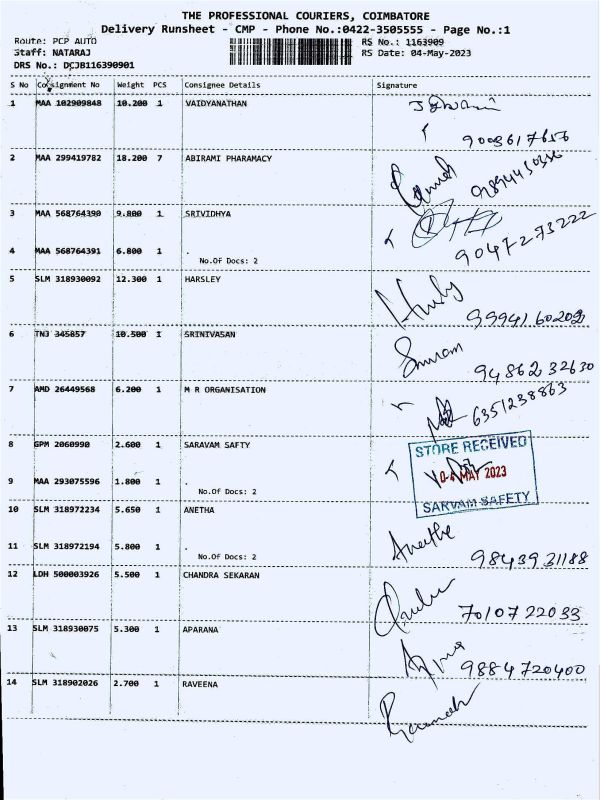 THE PROFESSIONAL COURIERS, COIMBATORE
Delivery Runsheet - CMP - Phone No.:0422-3505555 - Page No.:1
Route: PCP AUTO RS No.: 1163909
Staff: NATARAJ RS Date: 04-May-2023
DRS No.: DCJB116390901
S No Consignment No Weight PCS Consignee Details Signature
1 MAA 102909848 10.200 1 VAIDYANATHAN
9003617656
2 MAA 299419782 18.200 7 ABIRAMI PHARAMACY
3 MAA 568764390 9.800 1 SRIVIDHYA
9047273222
4 MAA 568764391 6.800 1 .
No.Of Docs: 2
5 SLM 318930092 12.300 1 HARSLEY
9994160202
6 TNJ 345857 10.500 1 SRINIVASAN
9486232630
7 AMD 26449568 6.200 1 M R ORGANISATION
6351238863
8 GPM 2060990 2.600 1 SARAVAM SAFTY
STORE RECEIVED
04 MAY 2023
SARVAM SAFETY
9 MAA 293075596 1.800 1 .
No.Of Docs: 2
10 SLM 318972234 5.650 1 ANETHA
Anethe
9843931188
11 SLM 318972194 5.800 1 .
No.Of Docs: 2
12 LDH 500003926 5.500 1 CHANDRA SEKARAN
7010722033
13 SLM 318930075 5.300 1 APARANA
9884720400
14 SLM 318902026 2.700 1 RAVEENA